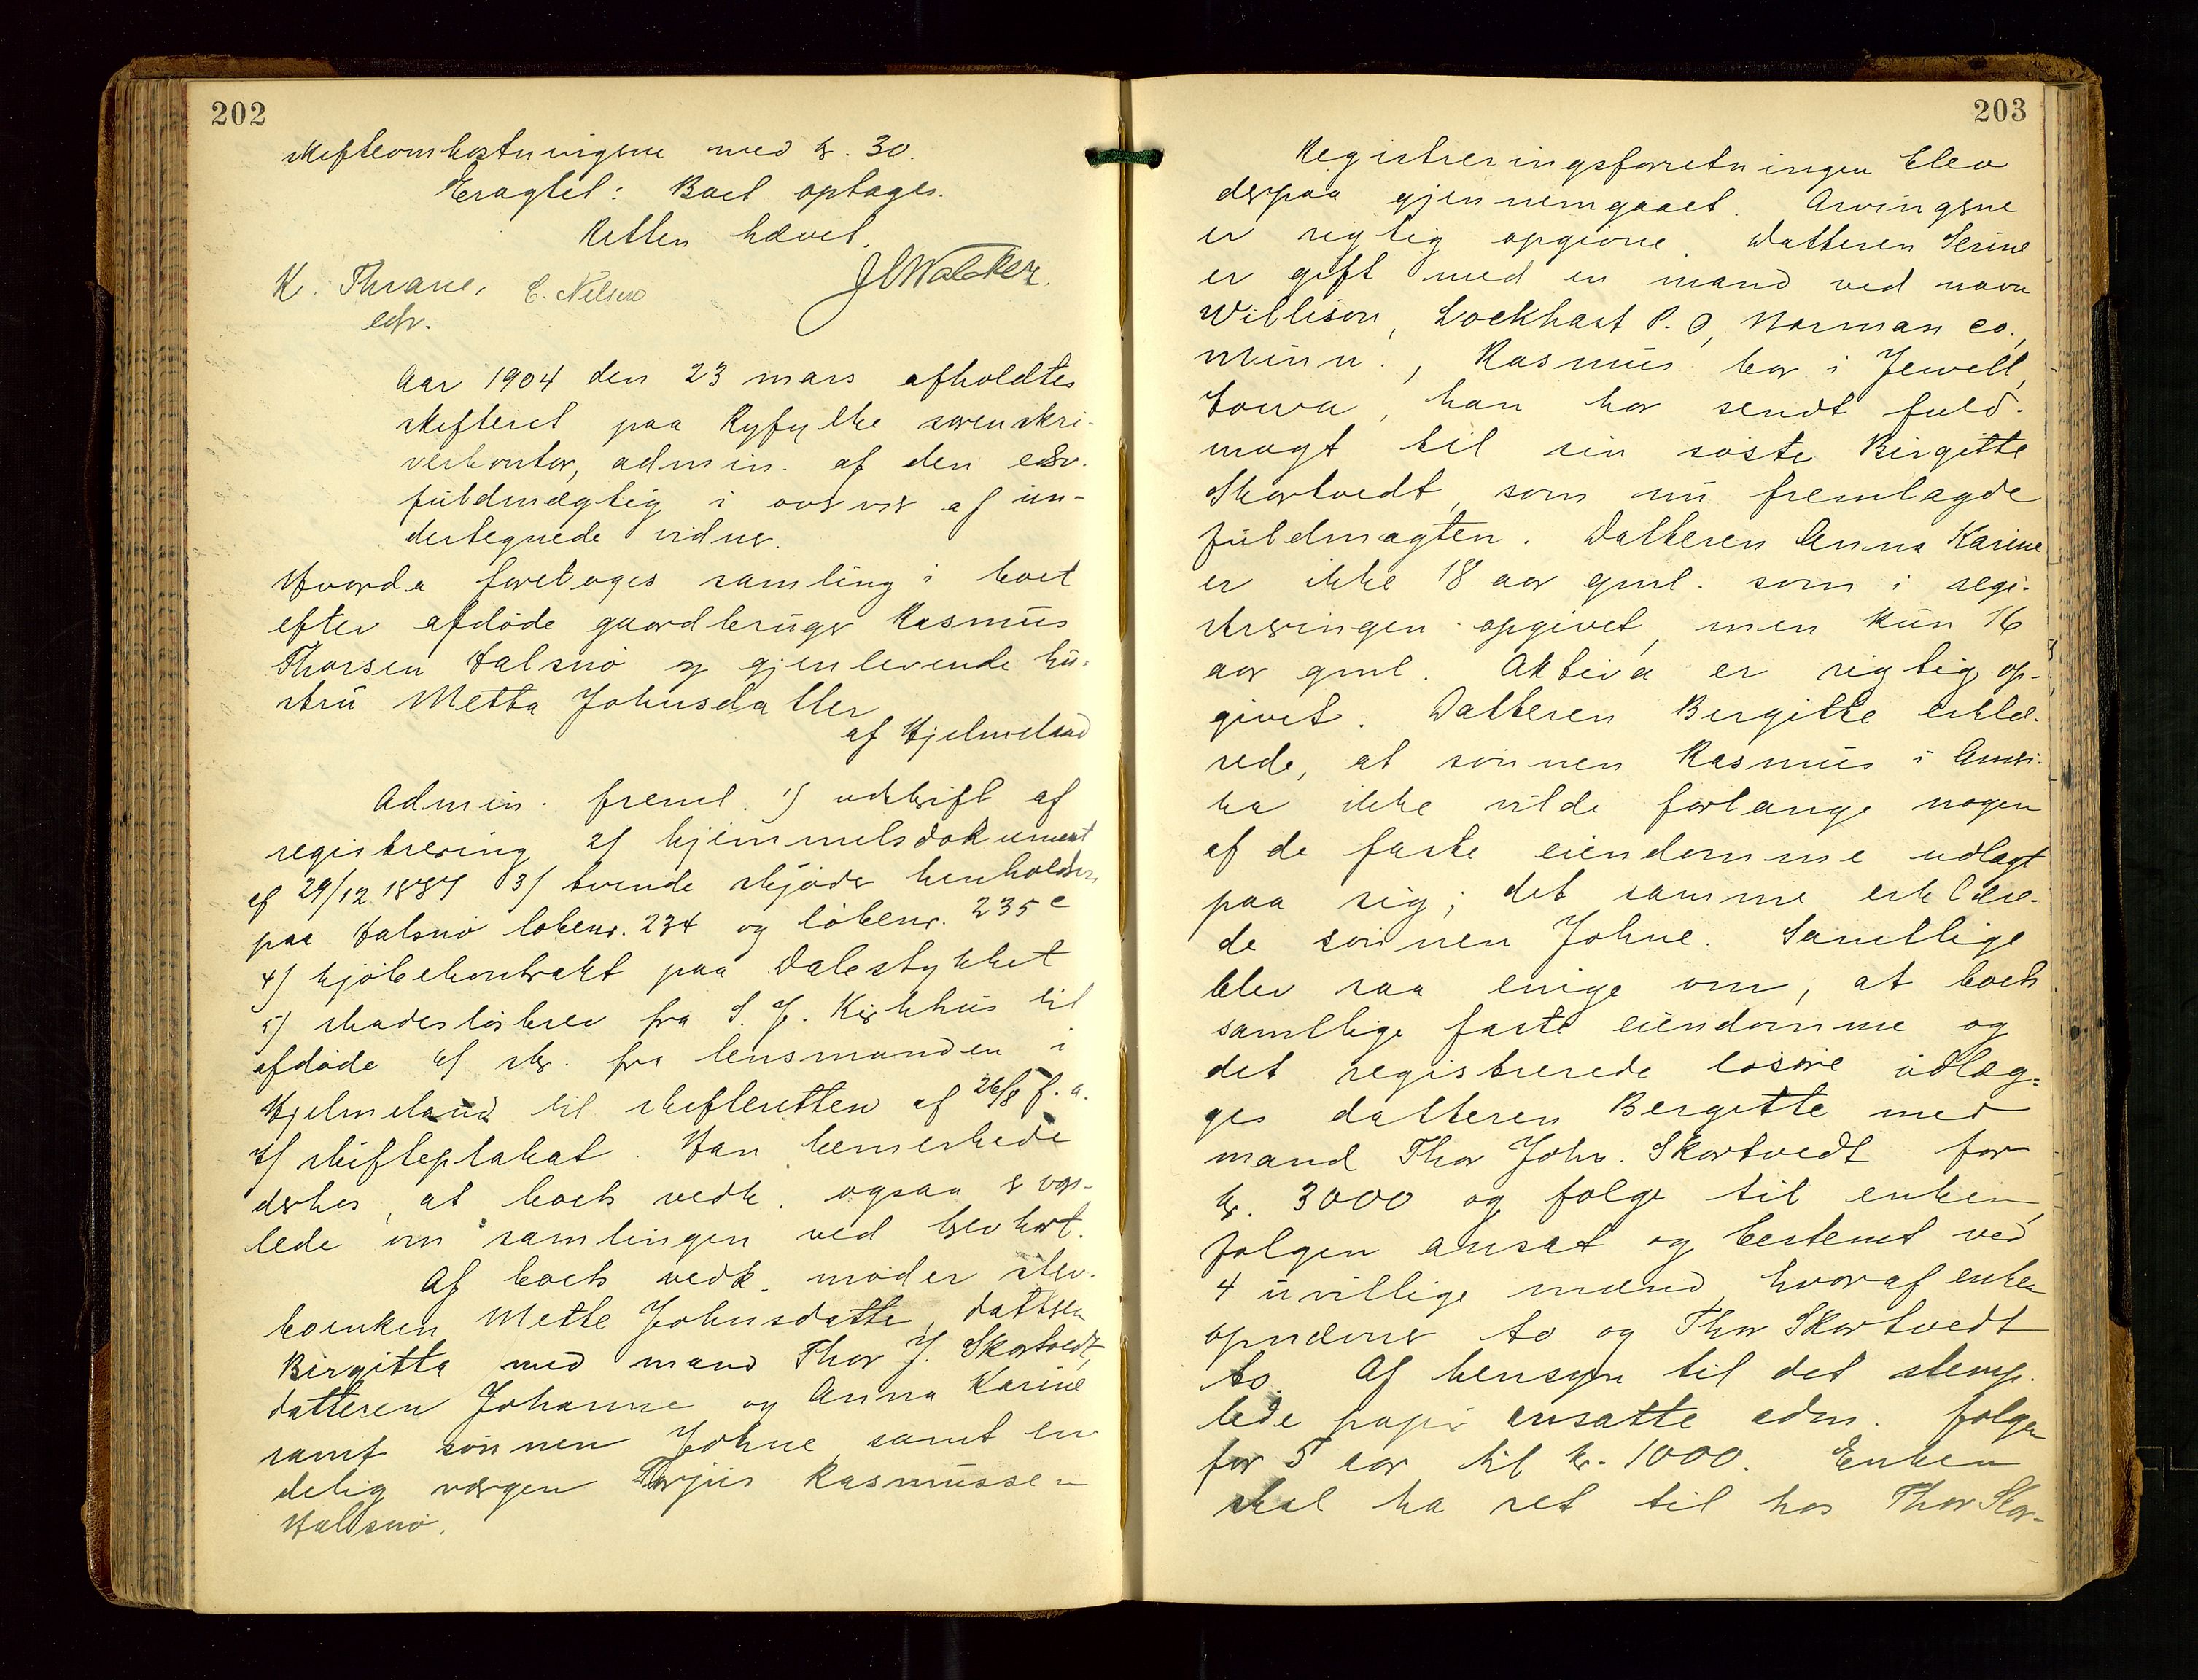 202
skifteomkostningerne med kr. 30.
Eragtet: Boet optages.
Retten hævet.
K. Thrane, C. Nelson J C Walcker.
edsv.
Aar 1904 den 23 mars afholdtes
skifteret paa Ryfylke sorenskri-
verkontor, admin. af den edsv.
fuldmægtig i overvær af un-
dertegnede vidner.
Hvorda foretoges samling i boet
efter afdøde gaardbruger Rasmus
Thorsen Halsnø og gjenlevende hu-
stru Metta Johnsdatter
af Hjelmeland
Admin. freml. 1) udskrift af
registrering 2) hjemmelsdokument
af 29/12 1887 3) tvende skjøder henholdsvis
paa Halsnø løbenr. 234 og løbenr. 235 c
4) kjøbekontrakt paa Dalestykket
5) skadesløsbrev fra S. J. Kirkhus til
afdøde 6) skr. fra lensmanden i
Hjelmeland til skifteretten af 26/8 f. a.
7) skifteplakat. Han bemerkede
derhos, at boets vedk. ogsaa er vars-
lede om samlingen ved brevkort.
Af boets vedk. møder ster-
boenken Mette Johnsdatter, datteren
Birgitta med mand Thor J. Skartvedt,
datteren Johanne og Anna Karine
samt sønnen Johne samt en-
delig værgen Torjus Rasmussen
Halsnø.
203
Registreringsforretningen blev
derpaa gjennemgaaet. Arvingerne
er rigtig opgivne. Datteren Serine
er gift med en mand ved navn
Willison, Lockhart P. O, Norman co.,
Minn., Rasmus bor i Jewell,
Iowa, han har sendt fuld-
magt til sin søster Birgitte
Skartvedt, som nu fremlagde
fuldmagten. Datteren Anna Karine
er ikke 18 aar gml. som i regi-
streringen opgivet, men kun 16
aar gml. Aktiva er rigtig op-
givet. Datteren Birgitte erklæ-
rede, at sønnen Rasmus i Ameri-
ka ikke vilde forlange nogen
af de faste eiendomme udlagt
paa sig; det samme erklære-
de sønnen Johne. Samtlige
blev saa enige om, at boets
samtlige faste eiendomme og
det registrerede løsøre udlæg-
ges datteren Bergitte med
mand Thor Johs. Skartvedt for
kr. 3000 og følge til enken,
følgen ansat og bestemt ved
4 uvillige mænd, hvoraf enken
opnævner to og Thor Skartvedt
to. Af hensyn til det stemp-
lede papir ansatte adm. følgen
for 5 aar til kr. 1000. Enken
skal ha ret til hos Thor Skar-